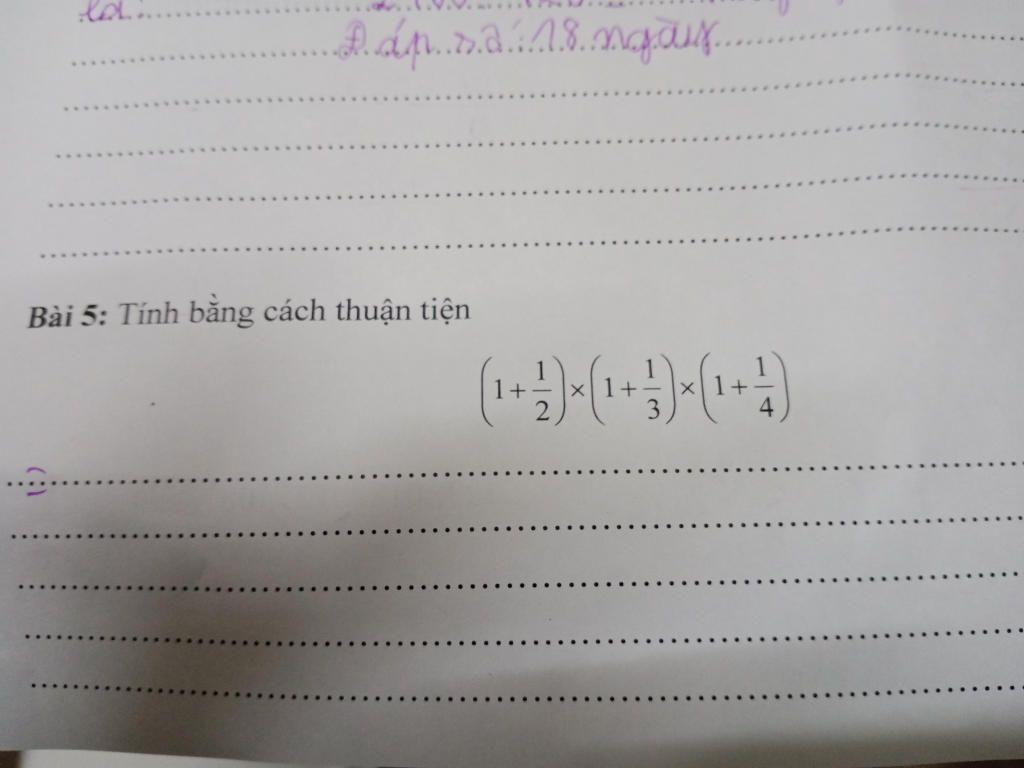 Đáp số: 18 ngày
Bài 5: Tính bằng cách thuận tiện
(1+1/2)×(1+1/3)×(1+1/4)
=